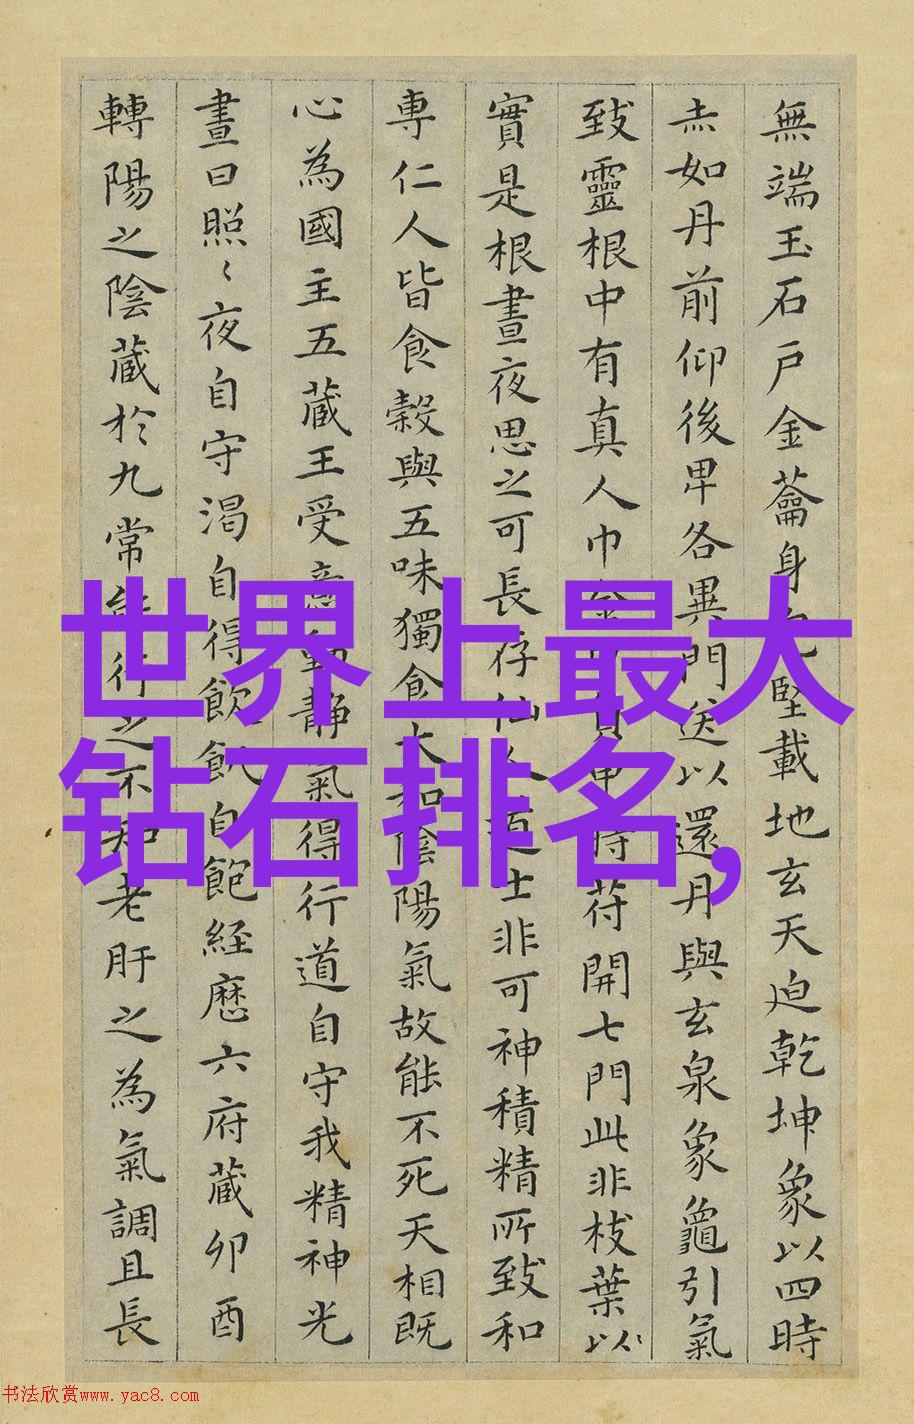 無端玉石戶金蘥身堅載地玄天迫乾坤象以四時
赤如丹前仰後卑各異門送以還丹與玄泉象龜引氣
致靈根中有真人巾金巾負甲持符開七門此非枝葉以
實是根晝夜思之可長存仙人道士非可神積精所致和
專仁人皆食穀與五味獨食大和陰陽氣故能不死天相既
心為國主五蔵王受意動静氣得行道自守我精神光
晝日照〻夜自守渴自得飲飢自飽経歷六府蔵卯酉
轉陽之陰蔵於九常能行之不知老肝之為氣調且長
世界上最大
钻石排名,
书法欣赏www.yac8.com